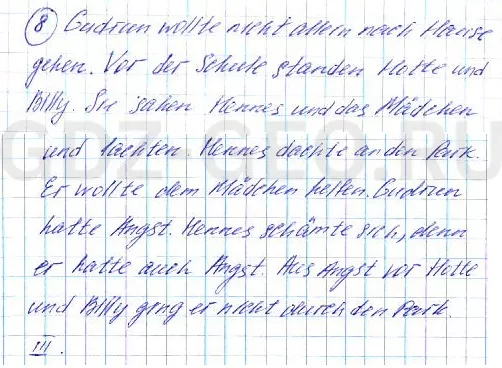 8 Gudrun wollte nicht allein nach Hause
gehen. Vor der Schule standen Hotte und
Billy. Sie sahen Hennes und das Mädchen
und lachten. Hennes dachte an den Park.
Er wollte dem Mädchen helfen. Gudrun
hatte Angst. Hennes schämte sich, denn
er hatte auch Angst. Aus Angst vor Hotte
und Billy ging er nicht durch den Park.
III.
GDZ-GEO.RU